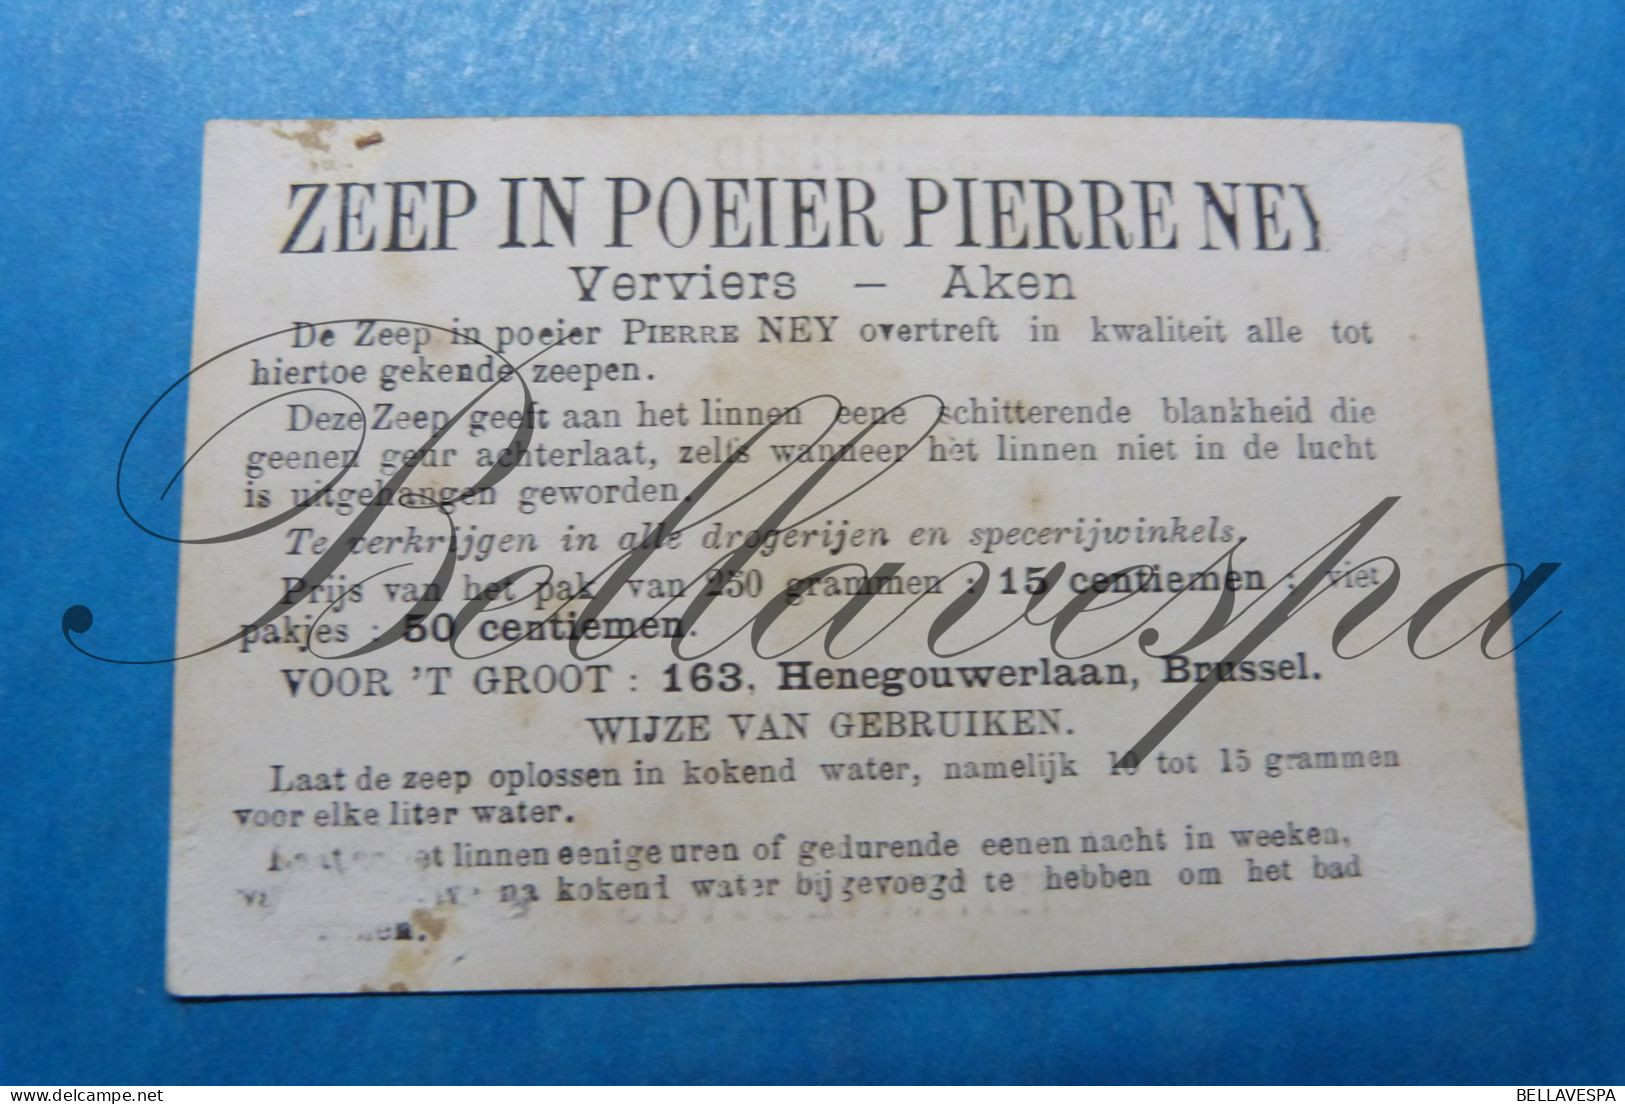 ZEEP IN POEIER PIERRE NEY
Verviers — Aken
De Zeep in poeier PIERRE NEY overtreft in kwaliteit alle tot
hiertoe gekende zeepen.
Deze Zeep geeft aan het linnen eene schitterende blankheid die
geenen geur achterlaat, zelfs wanneer het linnen niet in de lucht
is uitgehangen geworden.
Te verkrijgen in alle drogerijen en specerijwinkels.
Prijs van het pak van 250 grammen : 15 centiemen ; viet
pakjes : 50 centiemen.
VOOR 'T GROOT : 163, Henegouwerlaan, Brussel.
WIJZE VAN GEBRUIKEN.
Laat de zeep oplossen in kokend water, namelijk 10 tot 15 grammen
voor elke liter water.
linnen eenige uren of gedurende eenen nacht in weeken,
na kokend water bij gevoegd te hebben om het bad
Bellavespa
BELLAVESPA
delcampe.net